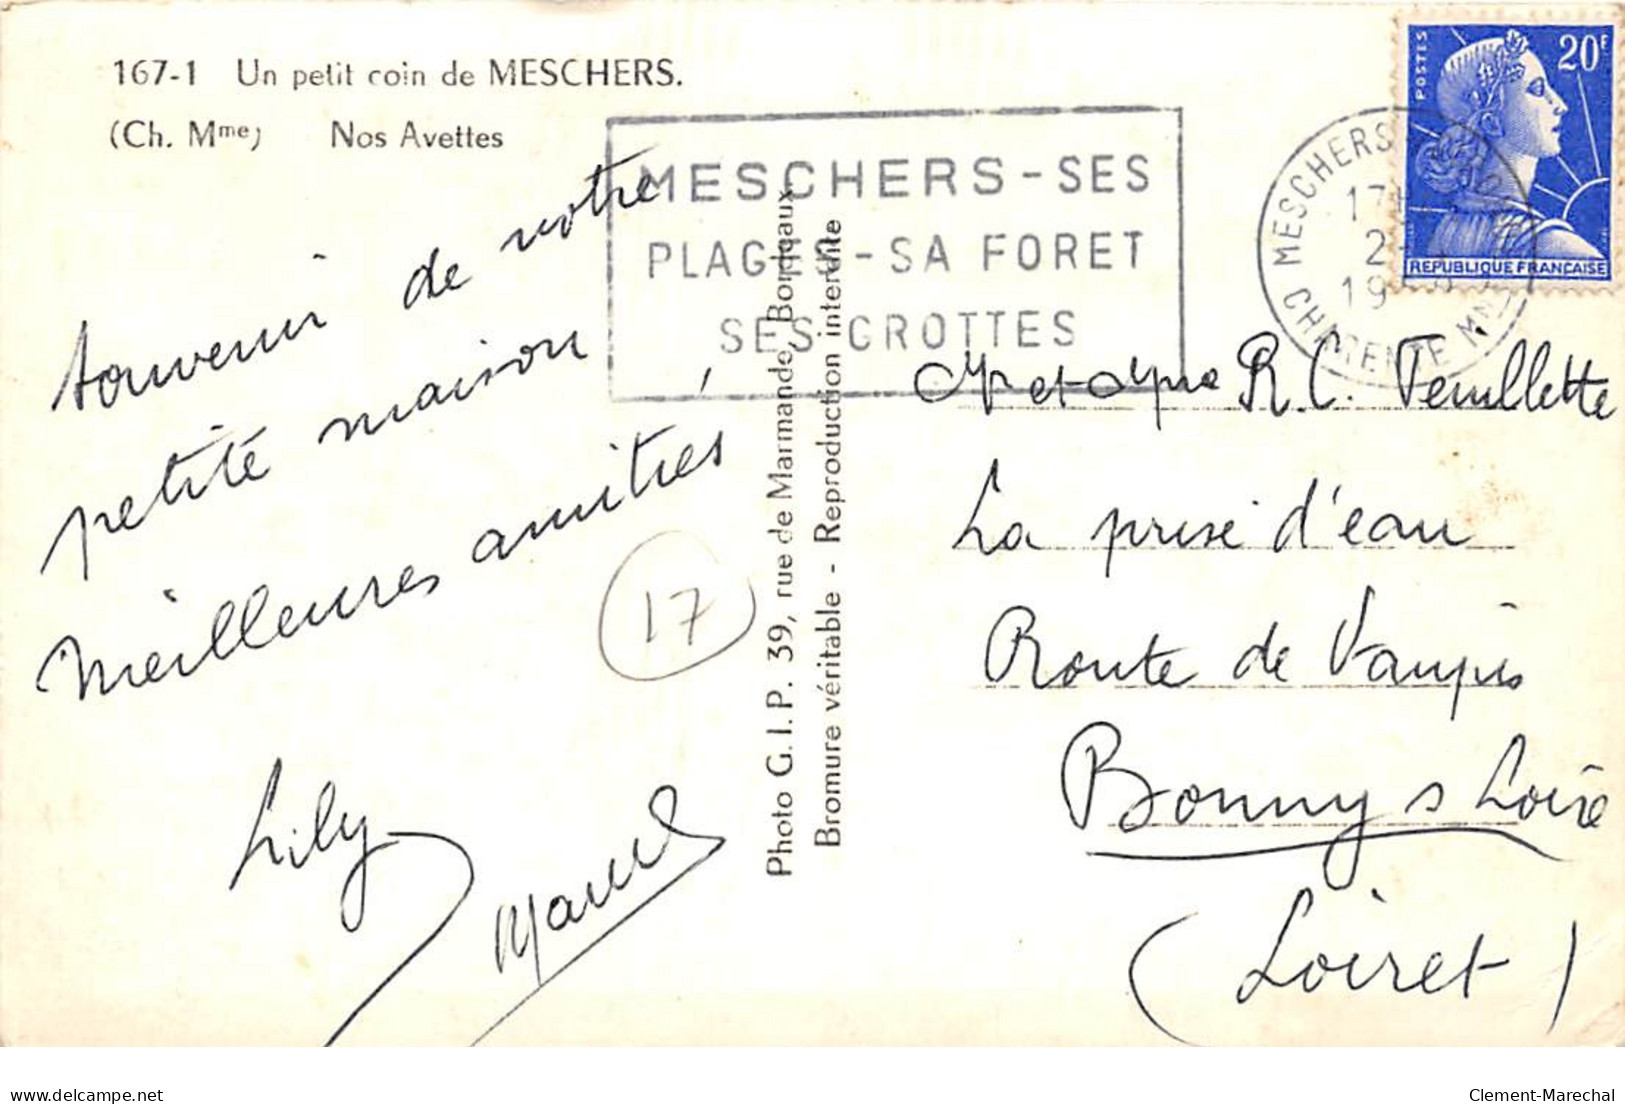 167-1 Un petit coin de MESCHERS.
(Ch. Mme) Nos Avettes
souvenir de notre
petite maison
meilleures amitiés
Lily
Marcel
17
Photo G.I.P. 39, rue de Marmande, Bordeaux
Bromure véritable - Reproduction interdite
MESCHERS - SES
PLAGES - SA FORET
SES GROTTES
MESCHERS
17
2-
19
CHARENTE MME
POSTES
20F
REPUBLIQUE FRANCAISE
Mr et Mme R. C. Feuillette
La prise d'eau
Route de Vaupis
Bonny s Loire
(Loiret)
Clement-Marechal